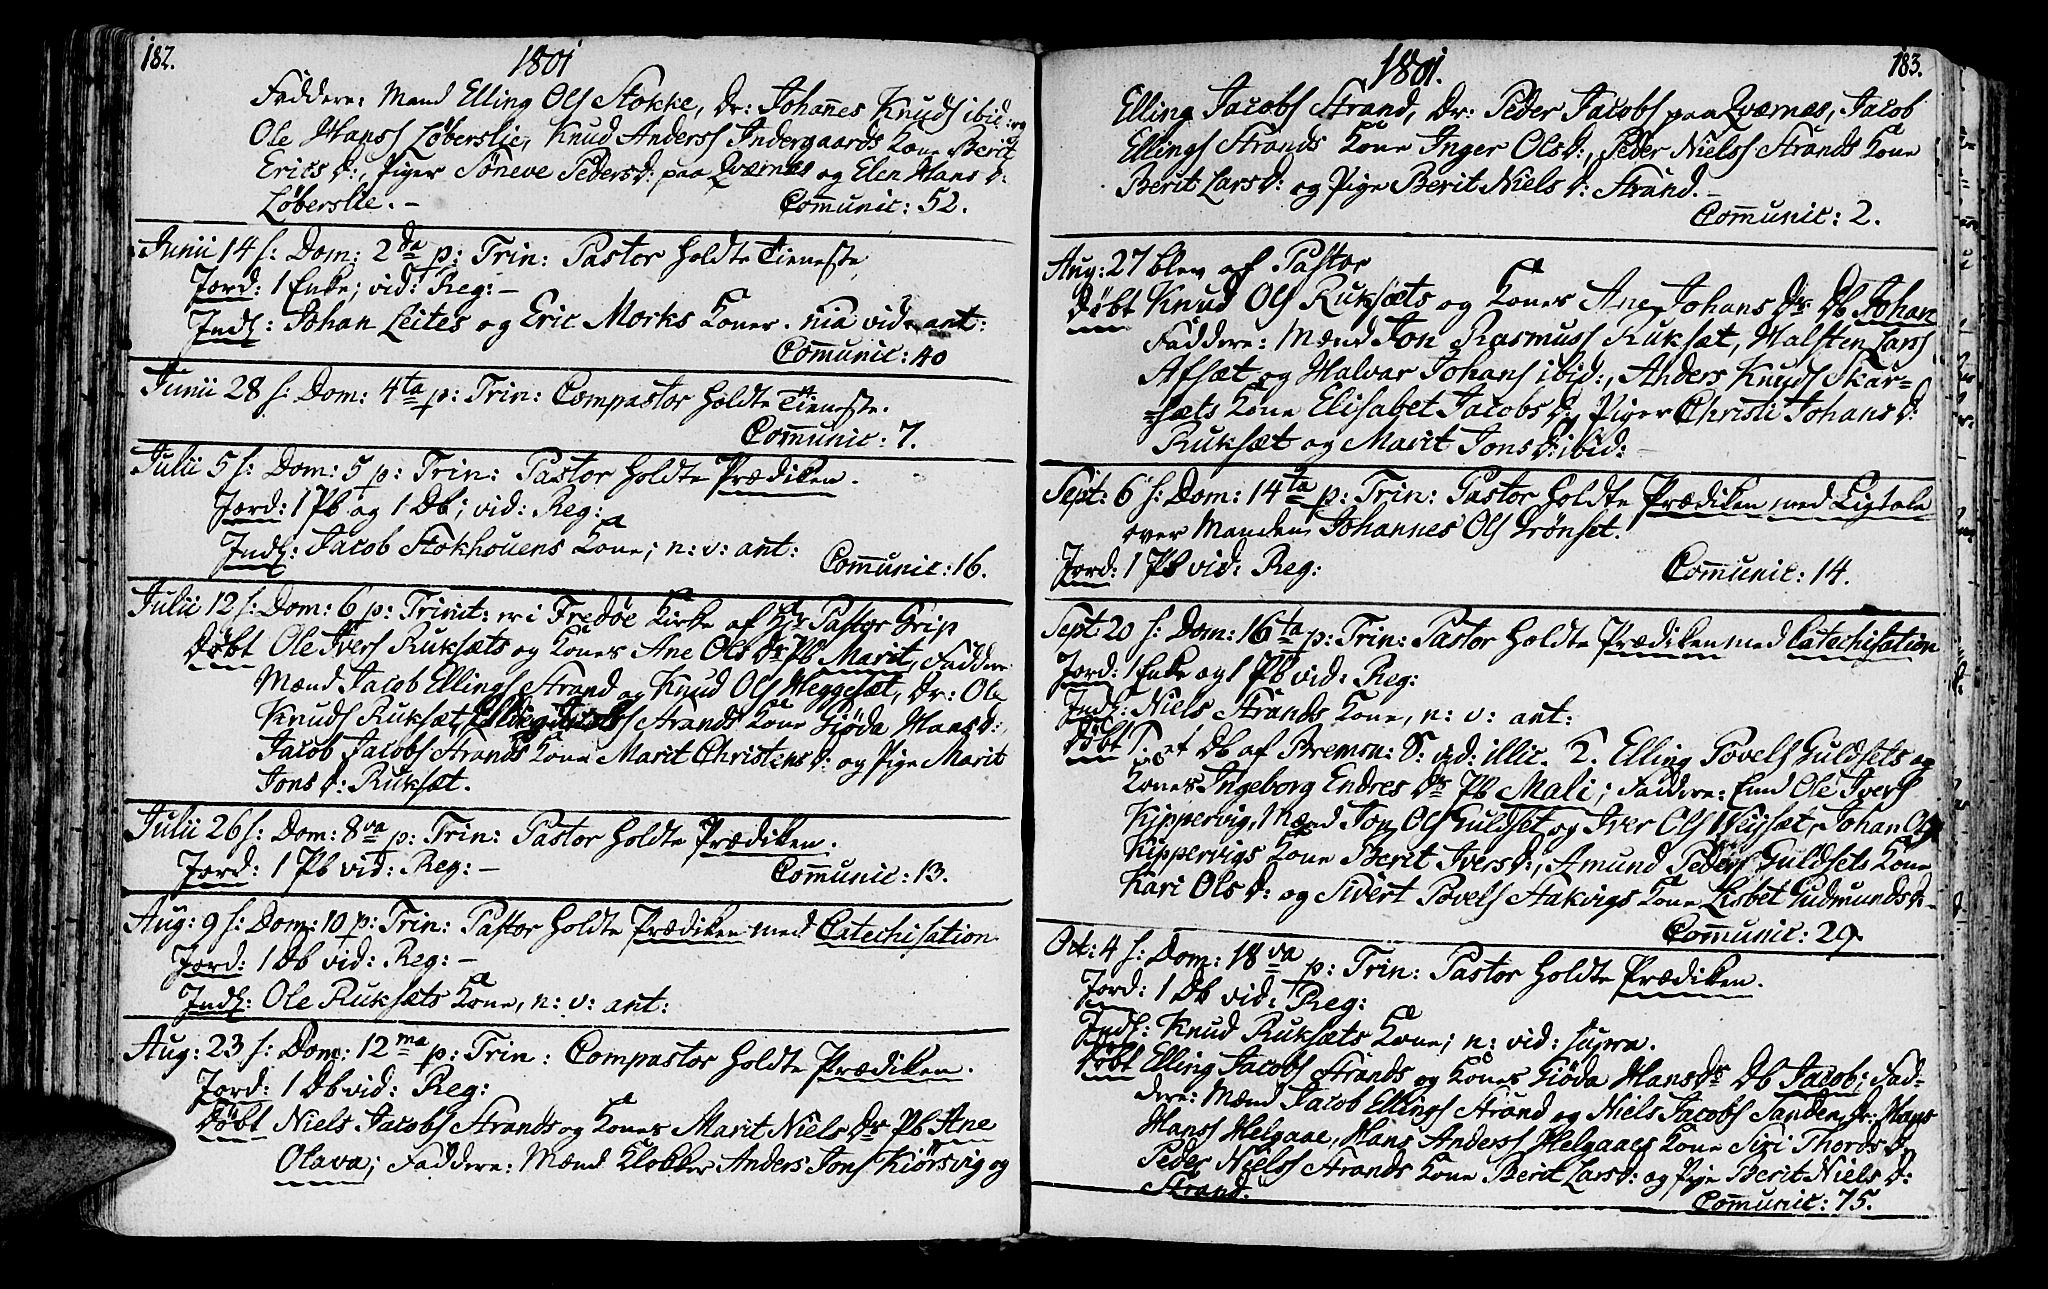 182.
1801
Faddere: Mend Elling Ols Stokke, Dr: Johannes Knuds ibid: og
Ole Hanss Løberslie, Knud Anderss Indergaards Kone Berit
Erics d:, Piger Søneve Peders d: paa Qværnes og Elen Hans d:
Løberslie. -
Comunic: 52.
Junii 14 s: Dom: 2da p: Trin: Pastor holdte Tieneste
Jord: 1 Enke; vid: Reg: -
Indl: Johan Leites og Eric Morks Koner. nia vid ant:
Comunic: 40
Junii 28 s: Dom: 4ta p: Trin: Compastor holdte Tieneste.
Comunic: 7.
Julii 5 s: Dom: 5 p: Trin: Pastor holdte Prædiken.
Jord: 1 Pb og 1 Db; vid: Reg:
Indl: Jacob Stokhouens Kone; n: v: ant:
Comunic: 16.
Julii 12 s: Dom: 6 p: Trinit: i Fredøe Kirke af Hr Pastor Grip
Døbt Ole Ivers Ruksæts og Kones Ane Ols Dr Pb Marit, Faddere
Mænd Jacob Ellings Strand og Knud Ols Heggesæt, Dr: Ole
Knuds Ruksæt, Elling Jacobs Strands Kone Giøda Hans d:
Jacob Jacobs Strands Kone Marit Christens d: og Pige Marit
Jons d: Ruksæt.
Julii 26 s: Dom: 8va p: Trin: Pastor holdte Prædiken.
Jord: 1 Pb vid: Reg: -
Comunic: 13.
Aug: 9 s: Dom: 10 p: Trin: Pastor holdte Prædiken med Catechisation
Jord: 1 Db vid: Reg: -
Indl: Ole Ruksæts Kone, n: v: ant:
Aug: 23 s: Dom: 12ma p: Trin: Compastor holdte Prædiken.
Jord: 1 Db vid: Reg:
Døbt Niels Jacobs Strands og Kones Marit Niels Dr Pb Ane
Olava; Faddere: Mænd Klokker Anders Jons Kiørsvig og
183.
1801.
Elling Jacobs Strand, Dr: Peder Jacobs paa Qværnes, Jacob
Ellings Strands Kone Inger Ols d:, Peder Nielss Strands Kone
Berit Lars d: og Pige Berit Niels d: Strand. -
Comunic: 2.
Aug: 27 blev af Pastor
Døbt Knud Ols Ruksæts og Kones Ane Johans Dr Db Johan
Faddere: Mænd Jon Rasmuss Ruksæt, Halsten Larss
Afsæt og Halvar Johans ibid:, Anders Knuds Skar=
=sæts Kone Elisabet Jacobs d:, Piger Christi Johans d:
Ruksæt og Marit Jons d: ibid: -
Sept: 6 s: Dom: 14ta p: Trin: Pastor holdte Prædiken med Ligtale
over Manden Johannes Ols Grønset.
Jord: 1 Pb vid: Reg:
Comunic: 14.
Sept: 20 s: Dom: 16ta p: Trin: Pastor holdte Prædiken med Catechisation
Jord: 1 Enke og 1 Pb vid: Reg:
Indl: Niels Strands Kone, n: v: ant:
Døbt 1. et Db af Bremsn: S: vid: illic. 2. Elling Povels Guldsets og
Kones Ingeborg Endres Dr Pb Mali; Faddere: Ole Ivers
Kippervig, Mænd Jon Ols Guldset og Iver Ols Weysæt, Johan Ols
Kippervigs Kone Berit Ivers d:, Amund Peders Guldsets Kone
Kari Ols d: og Sivert Povels Stakvigs Kone Lisbet Gudmunds d -
Comunic: 29.
Oct: 4 s: Dom: 18va p: Trin: Pastor holdte Prædiken.
Jord: 1 Db vid: Reg:
Indl: Knud Ruksæts Kone; n: vid: supra.
Døbt Elling Jacobs Strands og Kones Giøda Hans Dr Db Jacob; Fad-
dere: Mænd Jacob Ellings Strand og Niels Jacobs Sanden, Dr: Hans
Hanss Helgaae, Hans Anderss Helgaaes Kone Siri Thords d,
Peder Nielss Strands Kone Berit Lars d: og Pige Berit Niels d:
Strand.
Comunic: 75.